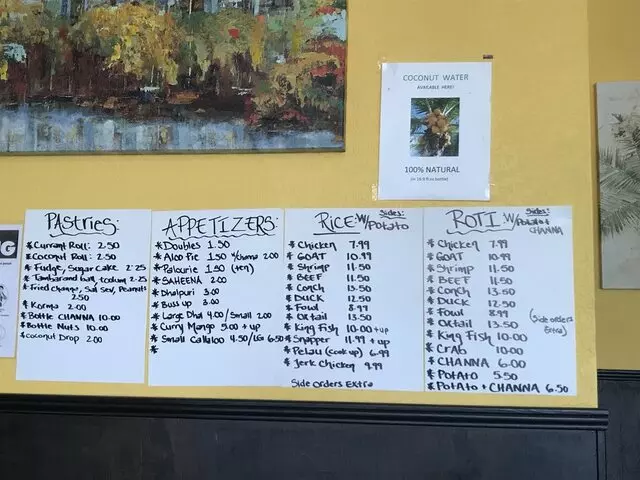 COCONUT WATER
AVAILABLE HERE!
100% NATURAL
(In 16.9 fl.oz bottle)
PAstries:
* Currant Roll: 2.50
* Coconut Roll: 2.50
* Fudge, Sugar Cake 2.25
* Tambarand ball, toolum 2.25
* Fried Channa, Salt Sev, Peanuts
2.50
* Korma 2.00
* Bottle CHANNA 10.00
* Bottle Nuts 10.00
* Coconut Drop 2.00
APPETIZERS:
* Doubles 1.50
* Aloo Pie 1.50 w/channa 2.00
* Palourie 1.50 (ten)
* SAHEENA 2.00
* Dhalpuri 3.00
* Buss up 3.00
* Large Dhal 4.00/Small 2.00
* Curry Mango 5.00 + up
* Small Callaloo 4.50/LG 6.50
*
RICE: W/Potato
Sides:
* Chicken 7.99
* GOAT 10.99
* Shrimp 11.50
* BEEF 11.50
* Conch 13.50
* DUCK 12.50
* Fowl 8.99
* Oxtail 13.50
* King Fish 10.00 + up
* Snapper 11.99 + up
* Pelau (cook up) 6.99
* Jerk Chicken 9.99
Side Orders Extra
ROTI: W/Potato +
CHANNA
Sides:
* Chicken 7.99
* GOAT 10.99
* Shrimp 11.50
* BEEF 11.50
* Conch 13.50
* DUCK 12.50
* Fowl 8.99
* Oxtail 13.50
(Side orders
Extra)
* King Fish 10.00
* Crab 10.00
* CHANNA 6.00
* Potato 5.50
* Potato + CHANNA 6.50